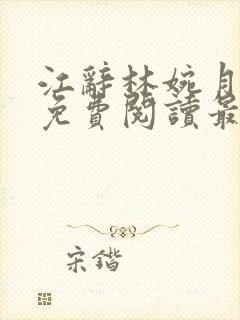 江辭林婉月
免費閱讀最
宋鍇